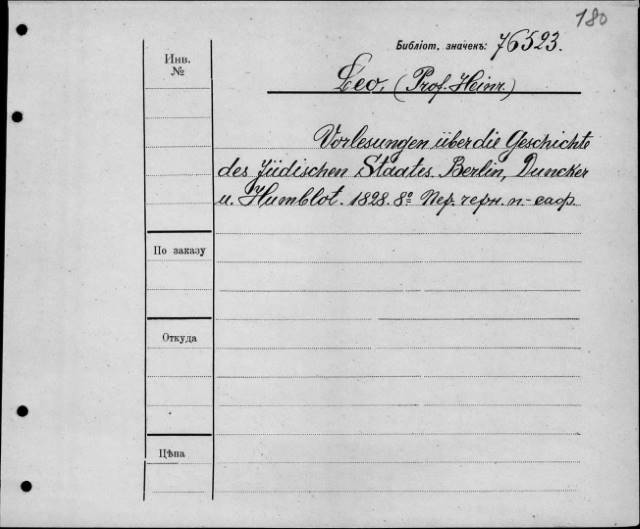 180
Библіот. значекъ: 76523.
Инв.
№
Leo, (Prof. Heinr.)
Vorlesungen über die Geschichte
des Jüdischen Staates. Berlin, Duncker
u. Humblot. 1828. 8º Пер. черн. п.-саф.
По заказу
Откуда
Цѣна